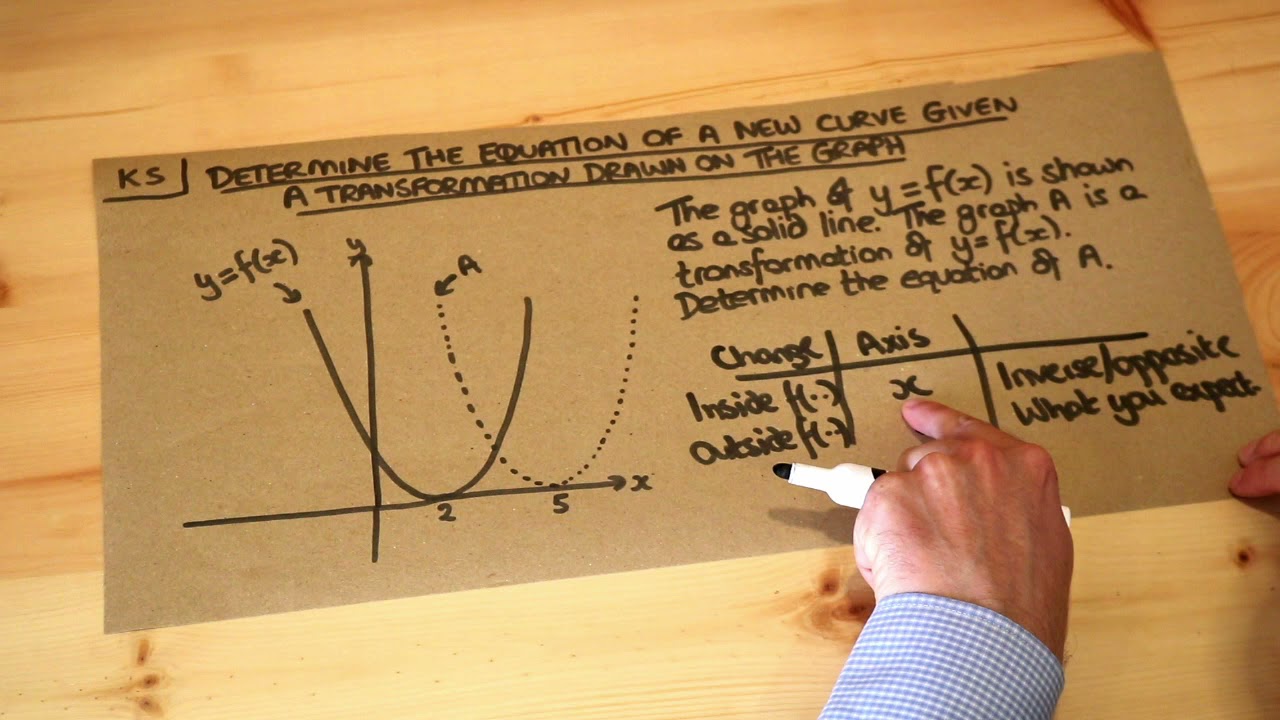 KS
DETERMINE THE EQUATION OF A NEW CURVE GIVEN
A TRANSFORMATION DRAWN ON THE GRAPH
The graph of y=f(x) is shown
as a solid line. The graph A is a
transformation of y=f(x).
Determine the equation of A.
y=f(x)
y
A
x
2
5
Change Axis
Inside f(..) x Inverse/opposite
Outside f(..) What you expect.